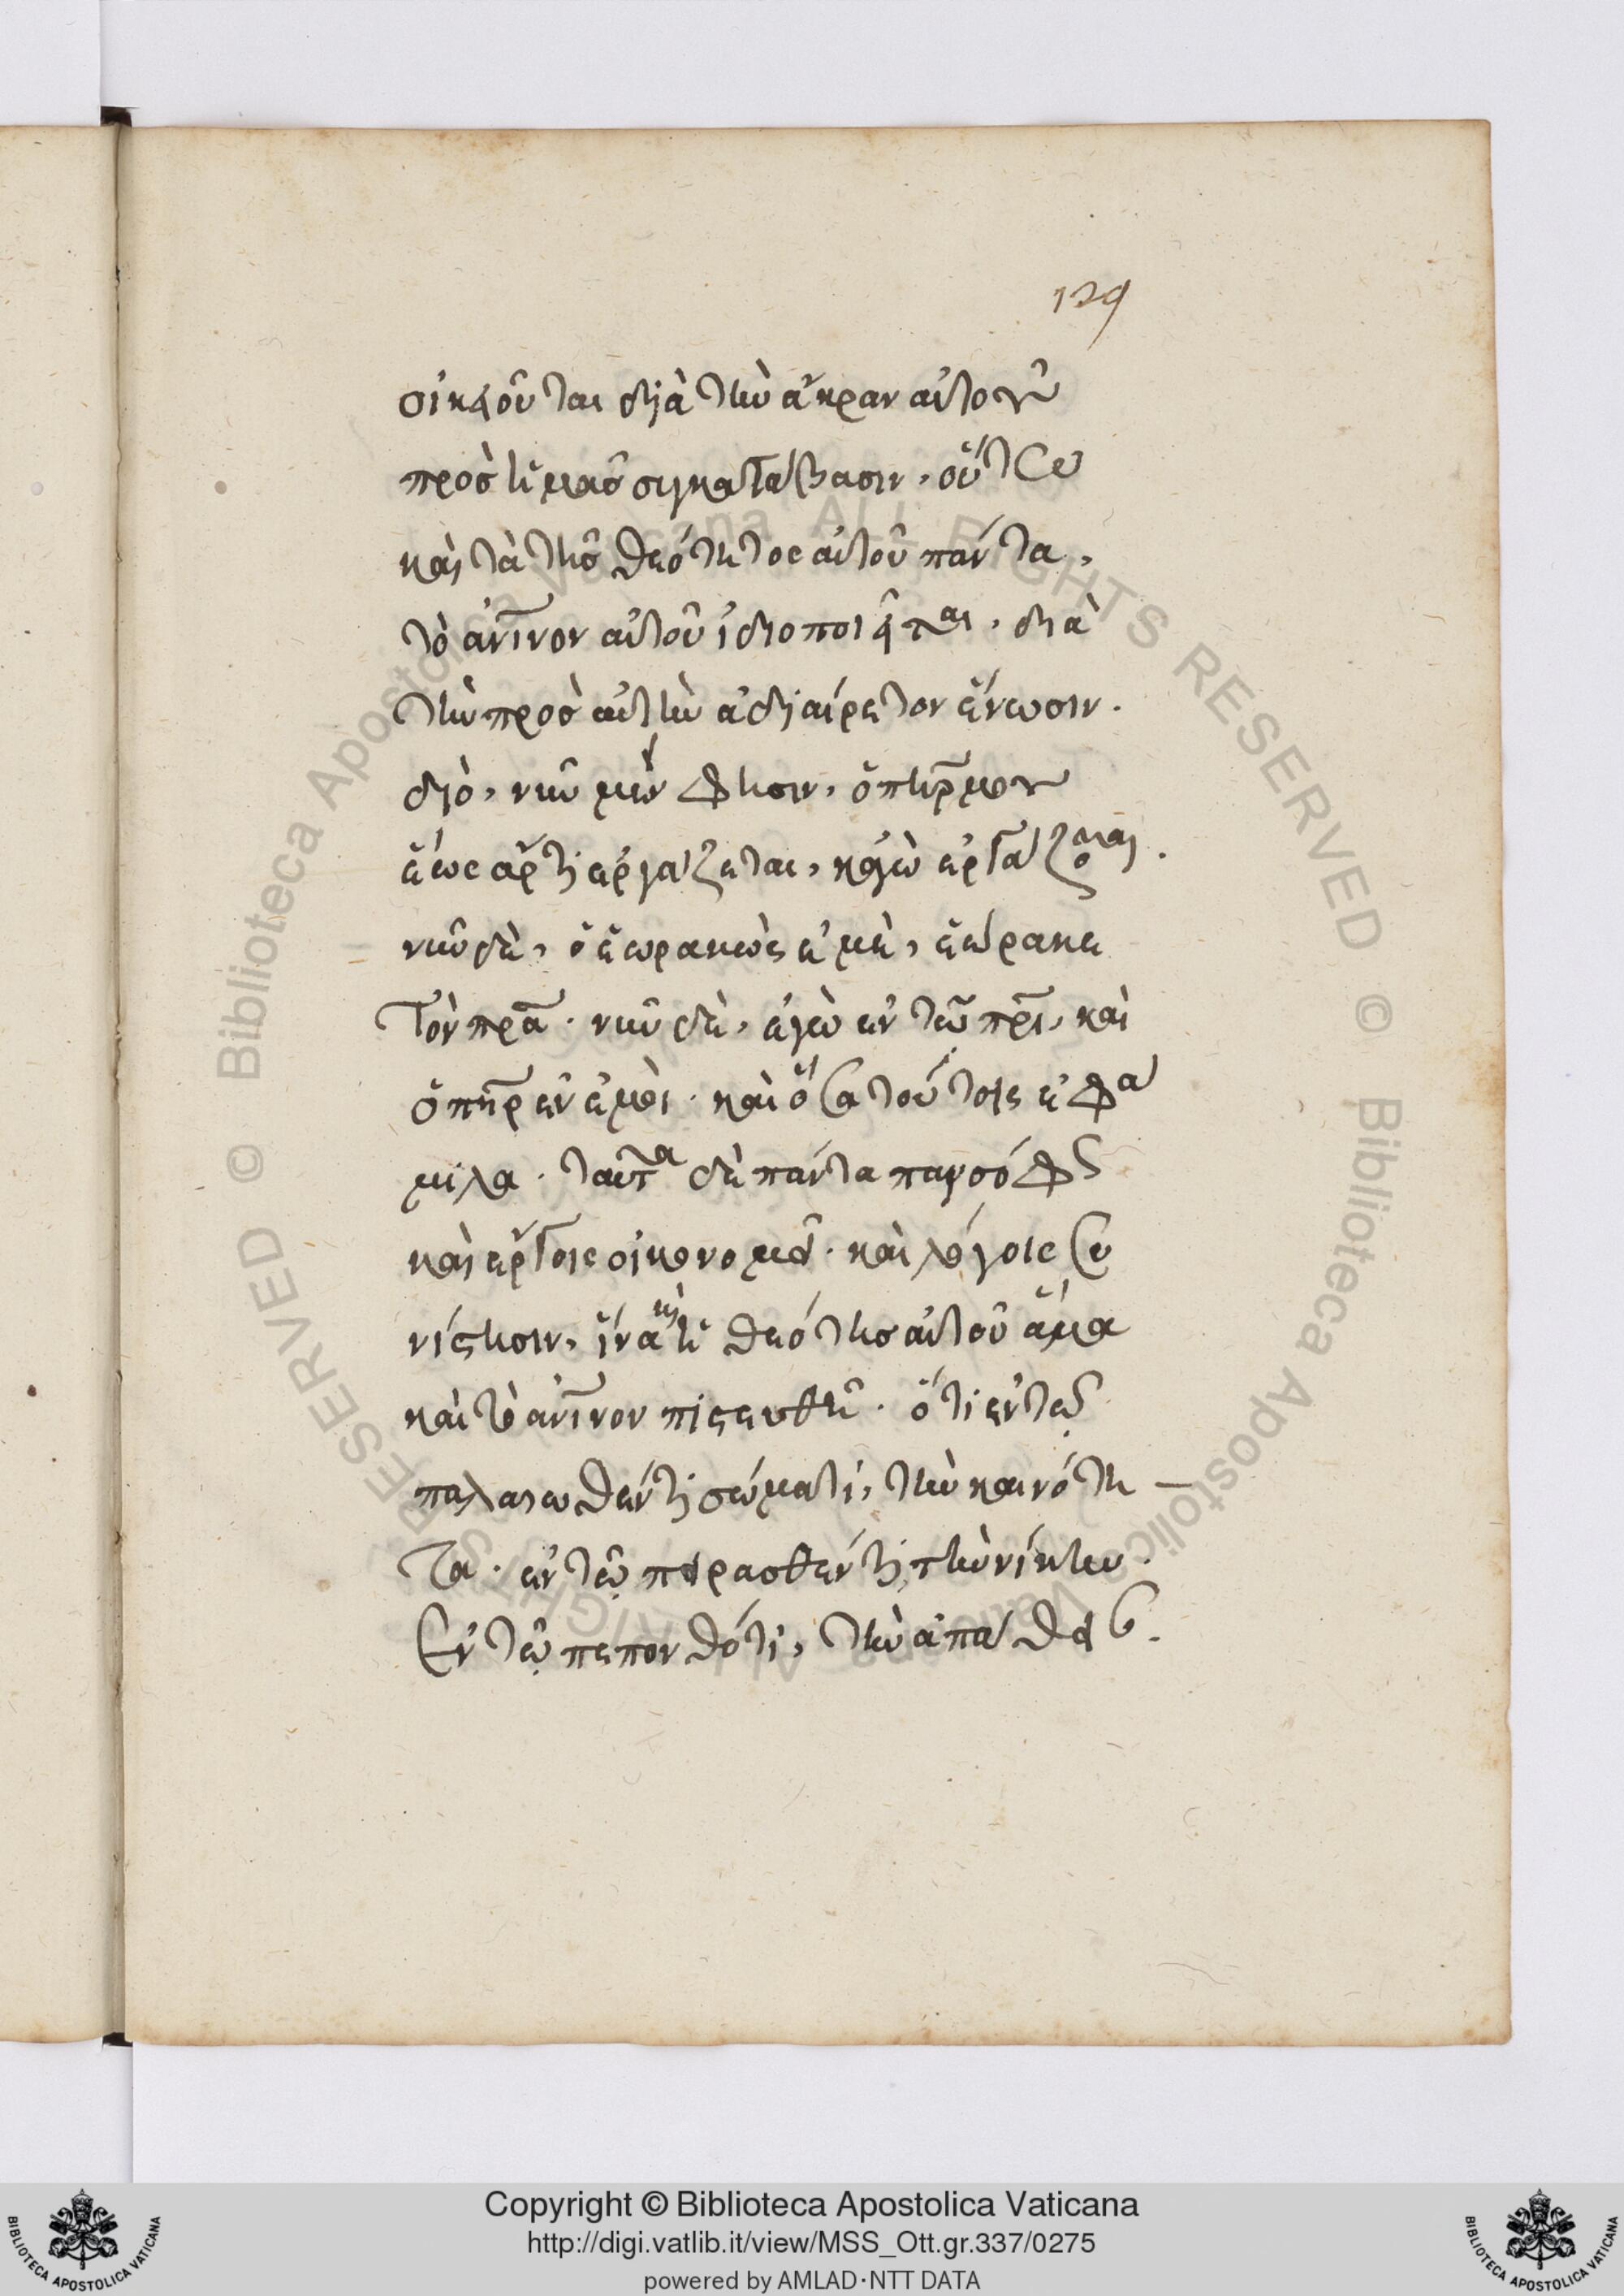 129
οἰκειοῦται διὰ τὴν ἄκραν αὐτοῦ
πρὸς ἡμᾶς συγκατάβασιν, οὕτω
καὶ τὰ τῆς θεότητος αὐτοῦ πάντα,
τὸ ἀν̅ινον αὐτοῦ ἰδιοποιεῖται, διὰ
τὴν πρὸς αὐτὴν ἀδιαίρετον ἕνωσιν.
διὸ, νῦν μέν φησιν, ὁ πη̅ρ μου
ἕως ἄρτι ἐργάζεται, κἀγὼ ἐργάζομαι.
νῦν δὲ, ὁ ἑωρακὼς ἐμὲ, ἑώρακε
τὸν πρ̅α. νῦν δὲ, ἐγὼ ἐν τῷ πρ̅ι, καὶ
ὁ πη̅ρ ἐν ἐμοί. καὶ ὅσα τούτοις ἐφά
μιλα. ταῦτα δὲ πάντα
καὶ ἔργοις οἰκονομεῖ. καὶ λόγοις συ
νίστησιν, ἵνα καὶ ἡ θεότης αὐτοῦ ἅμα
καὶ τὸ ἀν̅ινον πιστευθῇ. ὅτι ἐν τῷ
παλαιωθέντι σώματι, τὴν καινότη
τα. ἐν τῷ πειρασθέντι, τὴν νίκην.
ἐν τῷ πεπονθότι, τὴν ἀπάθειαν.
Copyright © Biblioteca Apostolica Vaticana
http://digi.vatlib.it/view/MSS_Ott.gr.337/0275
powered by AMLAD·NTT DATA
BIBLIOTECA APOSTOLICA VATICANA
BIBLIOTECA APOSTOLICA VATICANA
© Biblioteca Apostolica Vaticana ALL RIGHTS RESERVED
© Biblioteca Apostolica Vaticana ALL RIGHTS RESERVED